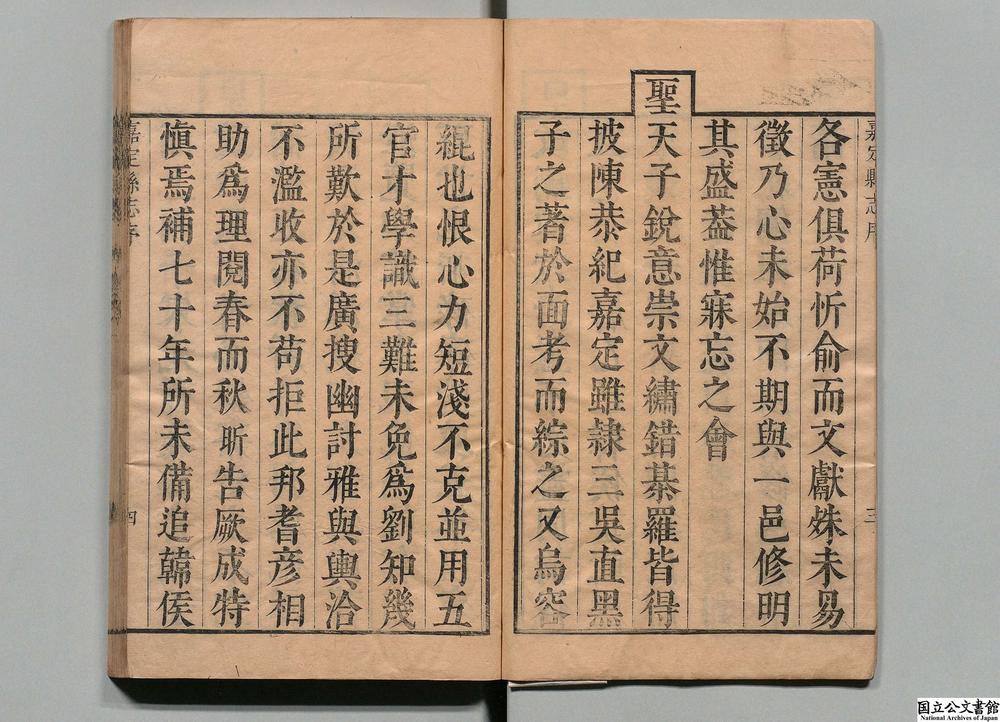 嘉定縣志序
三
各憲俱荷忻俞而文獻姝未易
徵乃心未始不期與一邑修明
其盛葢惟寐忘之會
聖天子銳意崇文繡錯棊羅皆得
披陳恭紀嘉定雖隷三吳直黑
子之著於面考而綜之又烏容
緄也恨心力短淺不克並用五
官才學識三難未免爲劉知幾
所歎於是廣搜幽討雅與輿洽
不濫收亦不苟拒此邦耆彥相
助爲理閱春而秋昕告厥成特
愼焉補七十年所未備追韓侯
嘉定縣志序
四
国立公文書館
National Archives of Japan